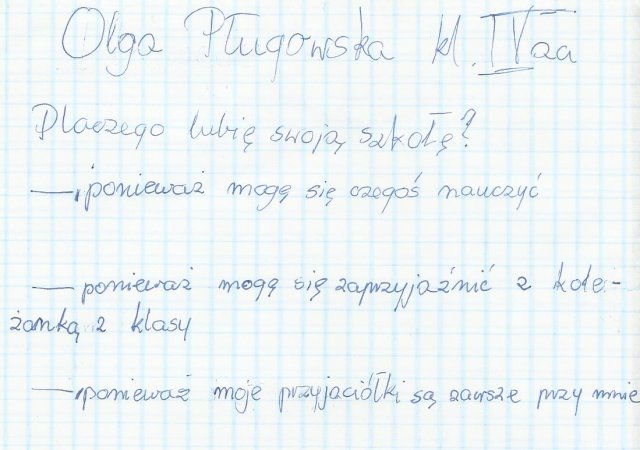 Olga Pługowska kl. IVaa
Dlaczego lubię swoją szkołę?
— ponieważ mogę się czegoś nauczyć
— ponieważ mogę się zaprzyjaźnić z kole-
żanką z klasy
— ponieważ moje przyjaciółki są zawsze przy mnie